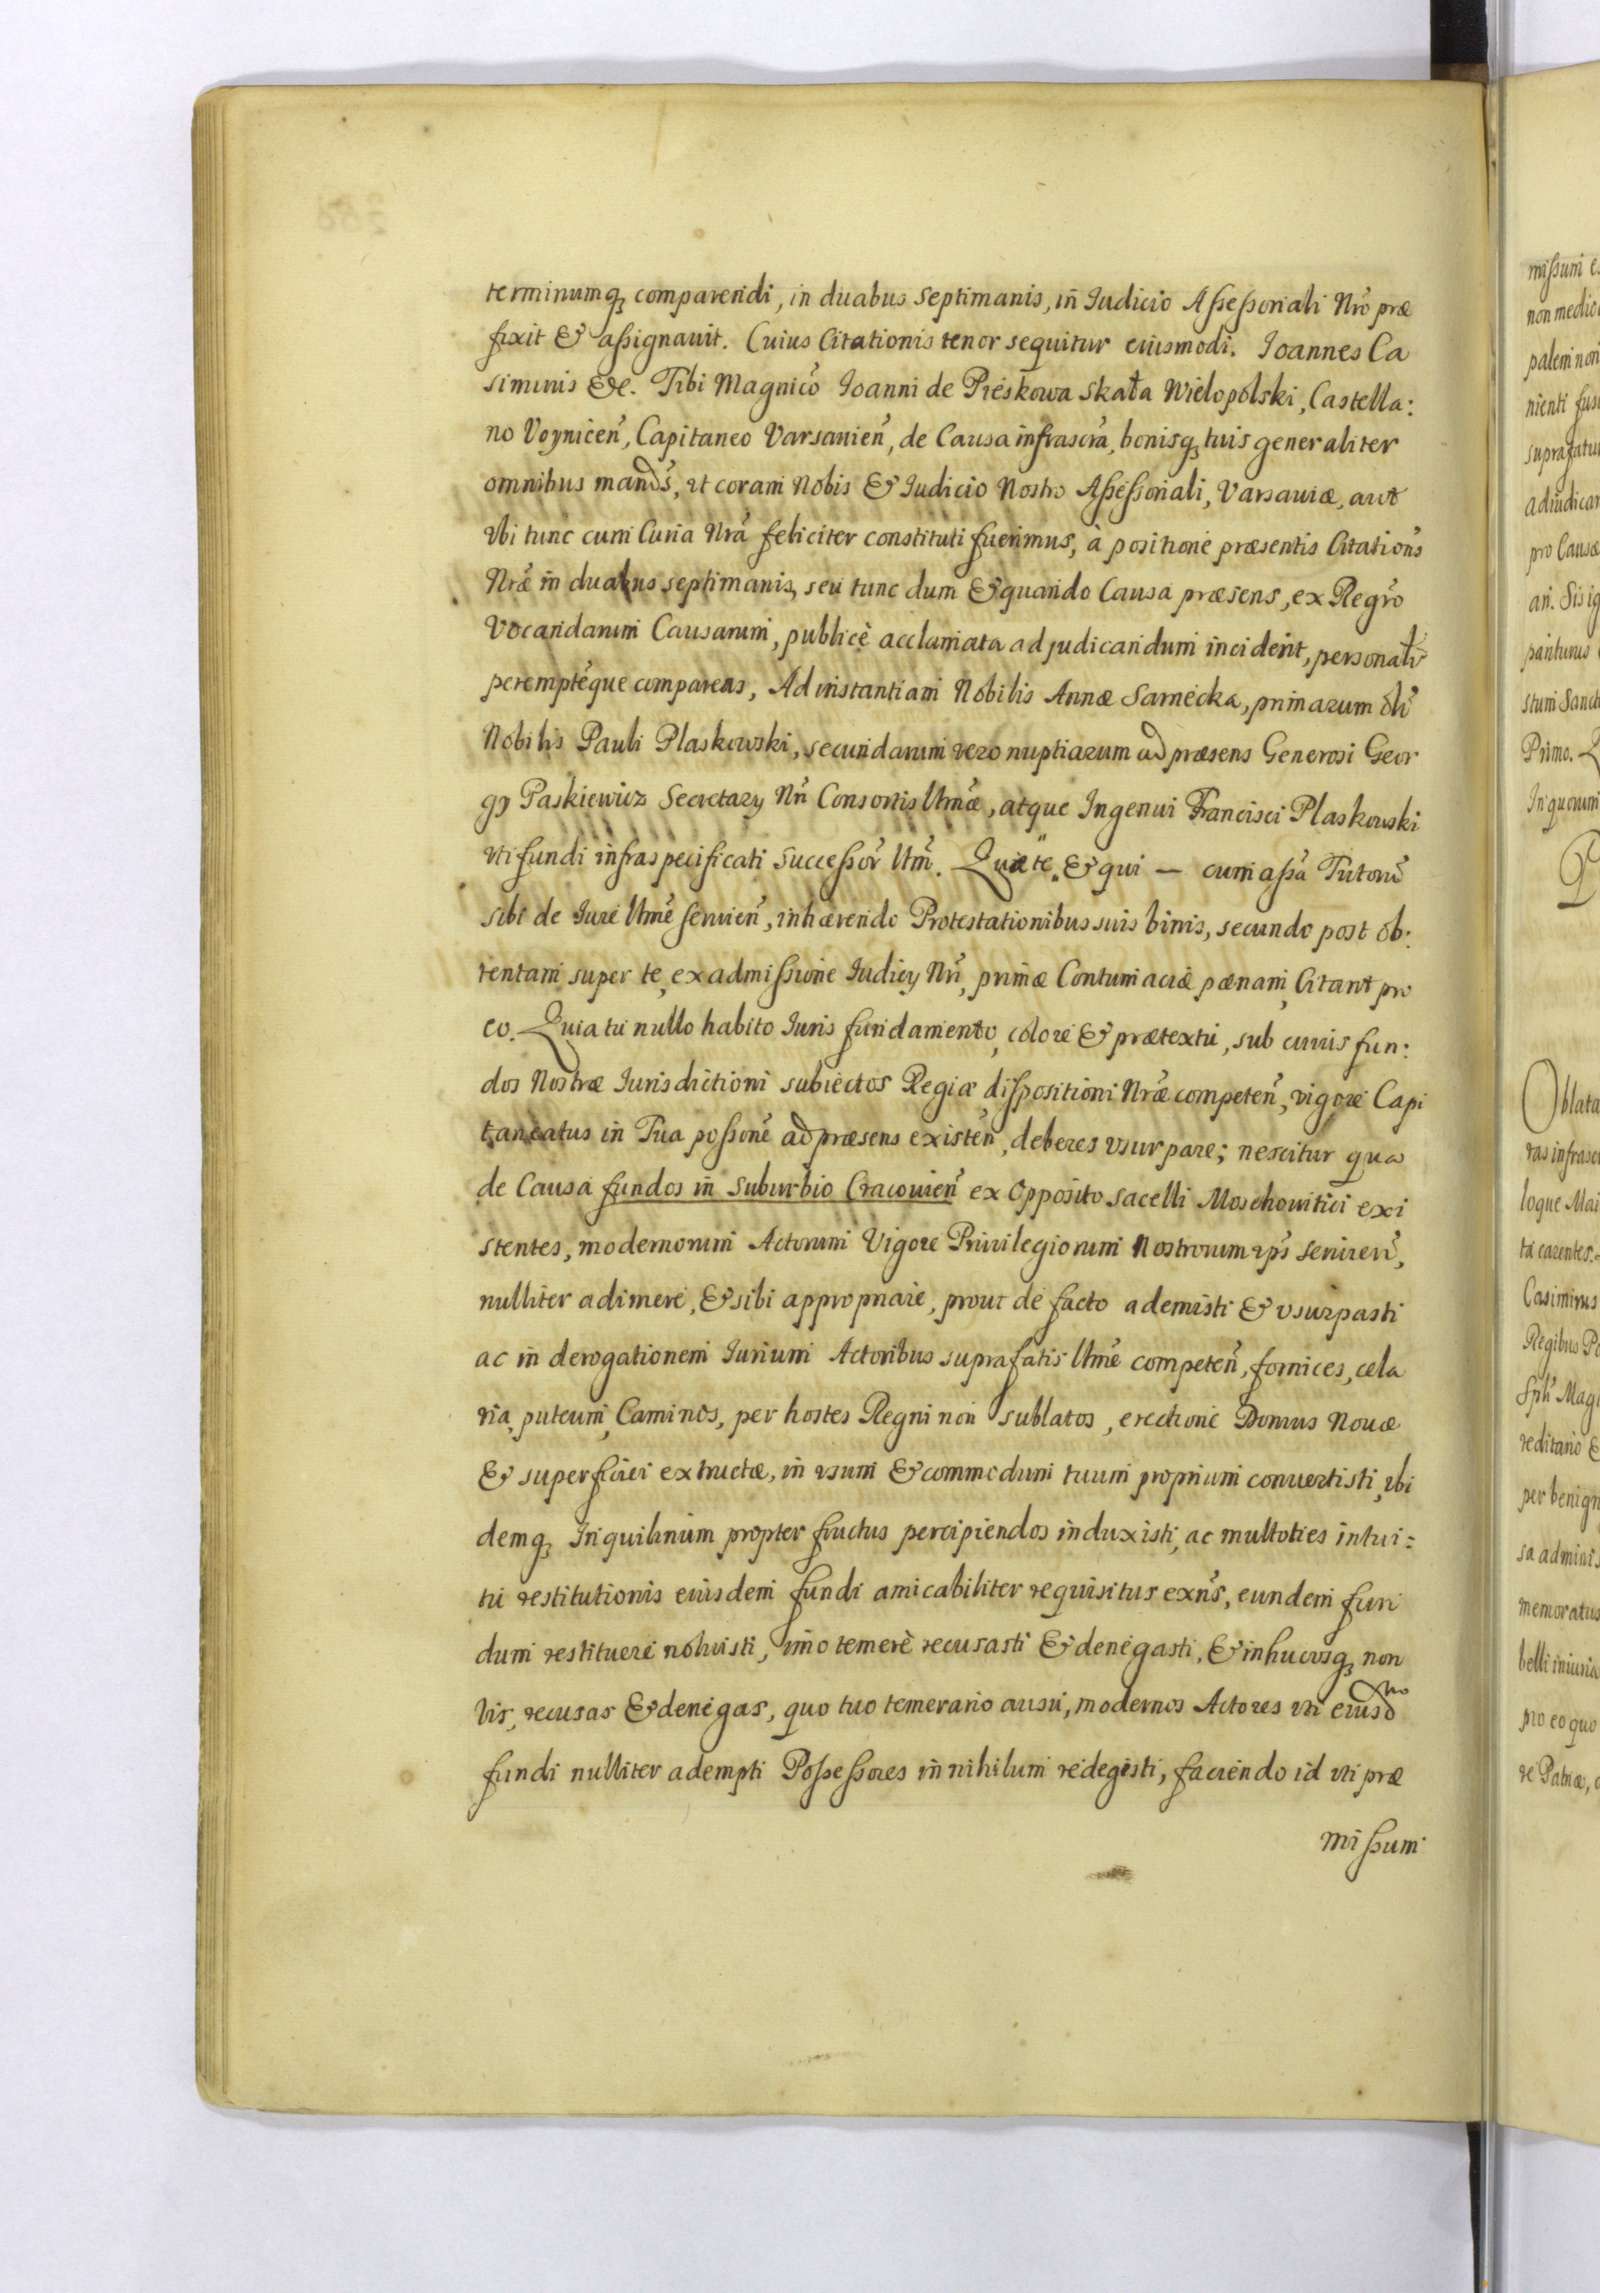 terminumq₃ comparendi, in duabus Septimanis, in Iudicio Aßeßoriali Nro præ
fixit & aßignavit. Cuius Citationis tenor sequitur eiusmodi. Ioannes Ca
simirus &c. Tibi Magnico Ioanni de Pieskowa Skała Wielopolski, Castella:
no Voynicen, Capitaneo Varsavien, de Causa infrascra, bonisq₃ tuis generaliter
omnibus mands, ut coram Nobis & Iudicio Nostro Aßeßoriali, Varsaviæ, aut
Vbi tunc cum Curia Nra feliciter constituti fuerimus, à positione præsentis Citations
Nræ in duabus septimanis, seu tunc dum & quando Causa præsens, ex Regro
Vocandarum Causarum, publicè acclamata ad judicandum incident, personalr
peremptéque compareas, Ad instantiam Nobilis Annæ Sarnecka, primarum oli
Nobilis Pauli Plaskowski, secundarum vero nuptiarum ad præsens Generosi Geor
gy Paskiewicz Secretary Nri Consortis Utmæ, atque Ingenui Francisci Plaskowski
uti fundi infraspecificati Succeßor Utm. Quæ te & qui — cum aßa Tutoru
sibi de Iure Utme servien, inhærendo Protestationibus suis binis, secundo post ob:
tentam super te, ex admißione Iudicy Nri, primæ Contumaciæ pænam, Citant pro
eo. Quia tu nullo habito Iuris fundamento, colore & prætextu, sub cuius fun:
dos Nostræ Iurisdictioni subiectos Regiæ dispositioni Nræ competen, vigore Capi
taneatus in Tua poßone ad præsens existen, deberes usurpare; nescitur qua
de Causa fundos in Suburbio Cracovien ex Opposito sacelli Moschovitici exi
stentes, modernorum Actorum Vigore Privilegiorum Nostrorum ips servien,
nulliter adimere, & sibi appropriare, prout de facto ademisti & usurpasti
ac in derogationem Iurium Actoribus suprafatis Utme competen, fornices, cela
ria, puteum, Caminos, per hostes Regni non sublatos, erectione Domus Novæ
& superficiei extructæ, in usum & commodum tuum proprium convertisti, ibi
demq₃ Inquilinum propter fructus percipiendos induxisti, ac multoties intui:
tu restitutionis eiusdem fundi amicabiliter requisitus exns, eundem fun
dum restituere noluisti, imo temerè recusasti & denegasti, & in hucusq₃ non
vis, recusas & denegas, quo tuo temerario ausu, modernos Actores uti eiusd
fundi nulliter adempti Poßeßores in nihilum redegisti, faciendo id uti præ
mißum